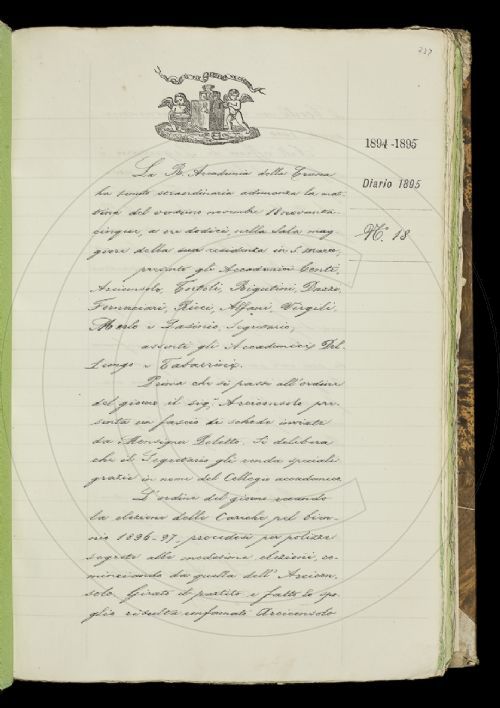 237
1894-1895
Diario 1895
N.° 18
La R. Accademia della Crusca
ha tenuto straordinaria adunanza la mat-
tina del ventuno novembre 18novanta-
cinque, a ore dodici, nella Sala mag-
giore della sua residenza in S. Marco,
presenti gli Accademici Conti,
Arciconsolo, Tortoli, Rigutini, Dazzi,
Fornaciari, Ricci, Alfani, Virgili,
Merlo e Segretario;
assenti gli Accademici Del
Lungo e Tabarrini.
Prima che si passi all'ordine
del giorno il sig.r Arciconsolo pre-
senta un fascio di schede inviate
da Monsignor Poletto. Si delibera
che il Segretario gli renda speciali
grazie in nome del Collegio accademico.
L'ordine del giorno recando
la elezione delle Cariche pel bien-
nio 1896-97, procedesi per polizze
segrete alle medesime elezioni, co-
minciando da quella dell'Arcicon-
solo. Girato il partito e fatto lo spo-
glio risulta confermato Arciconsolo